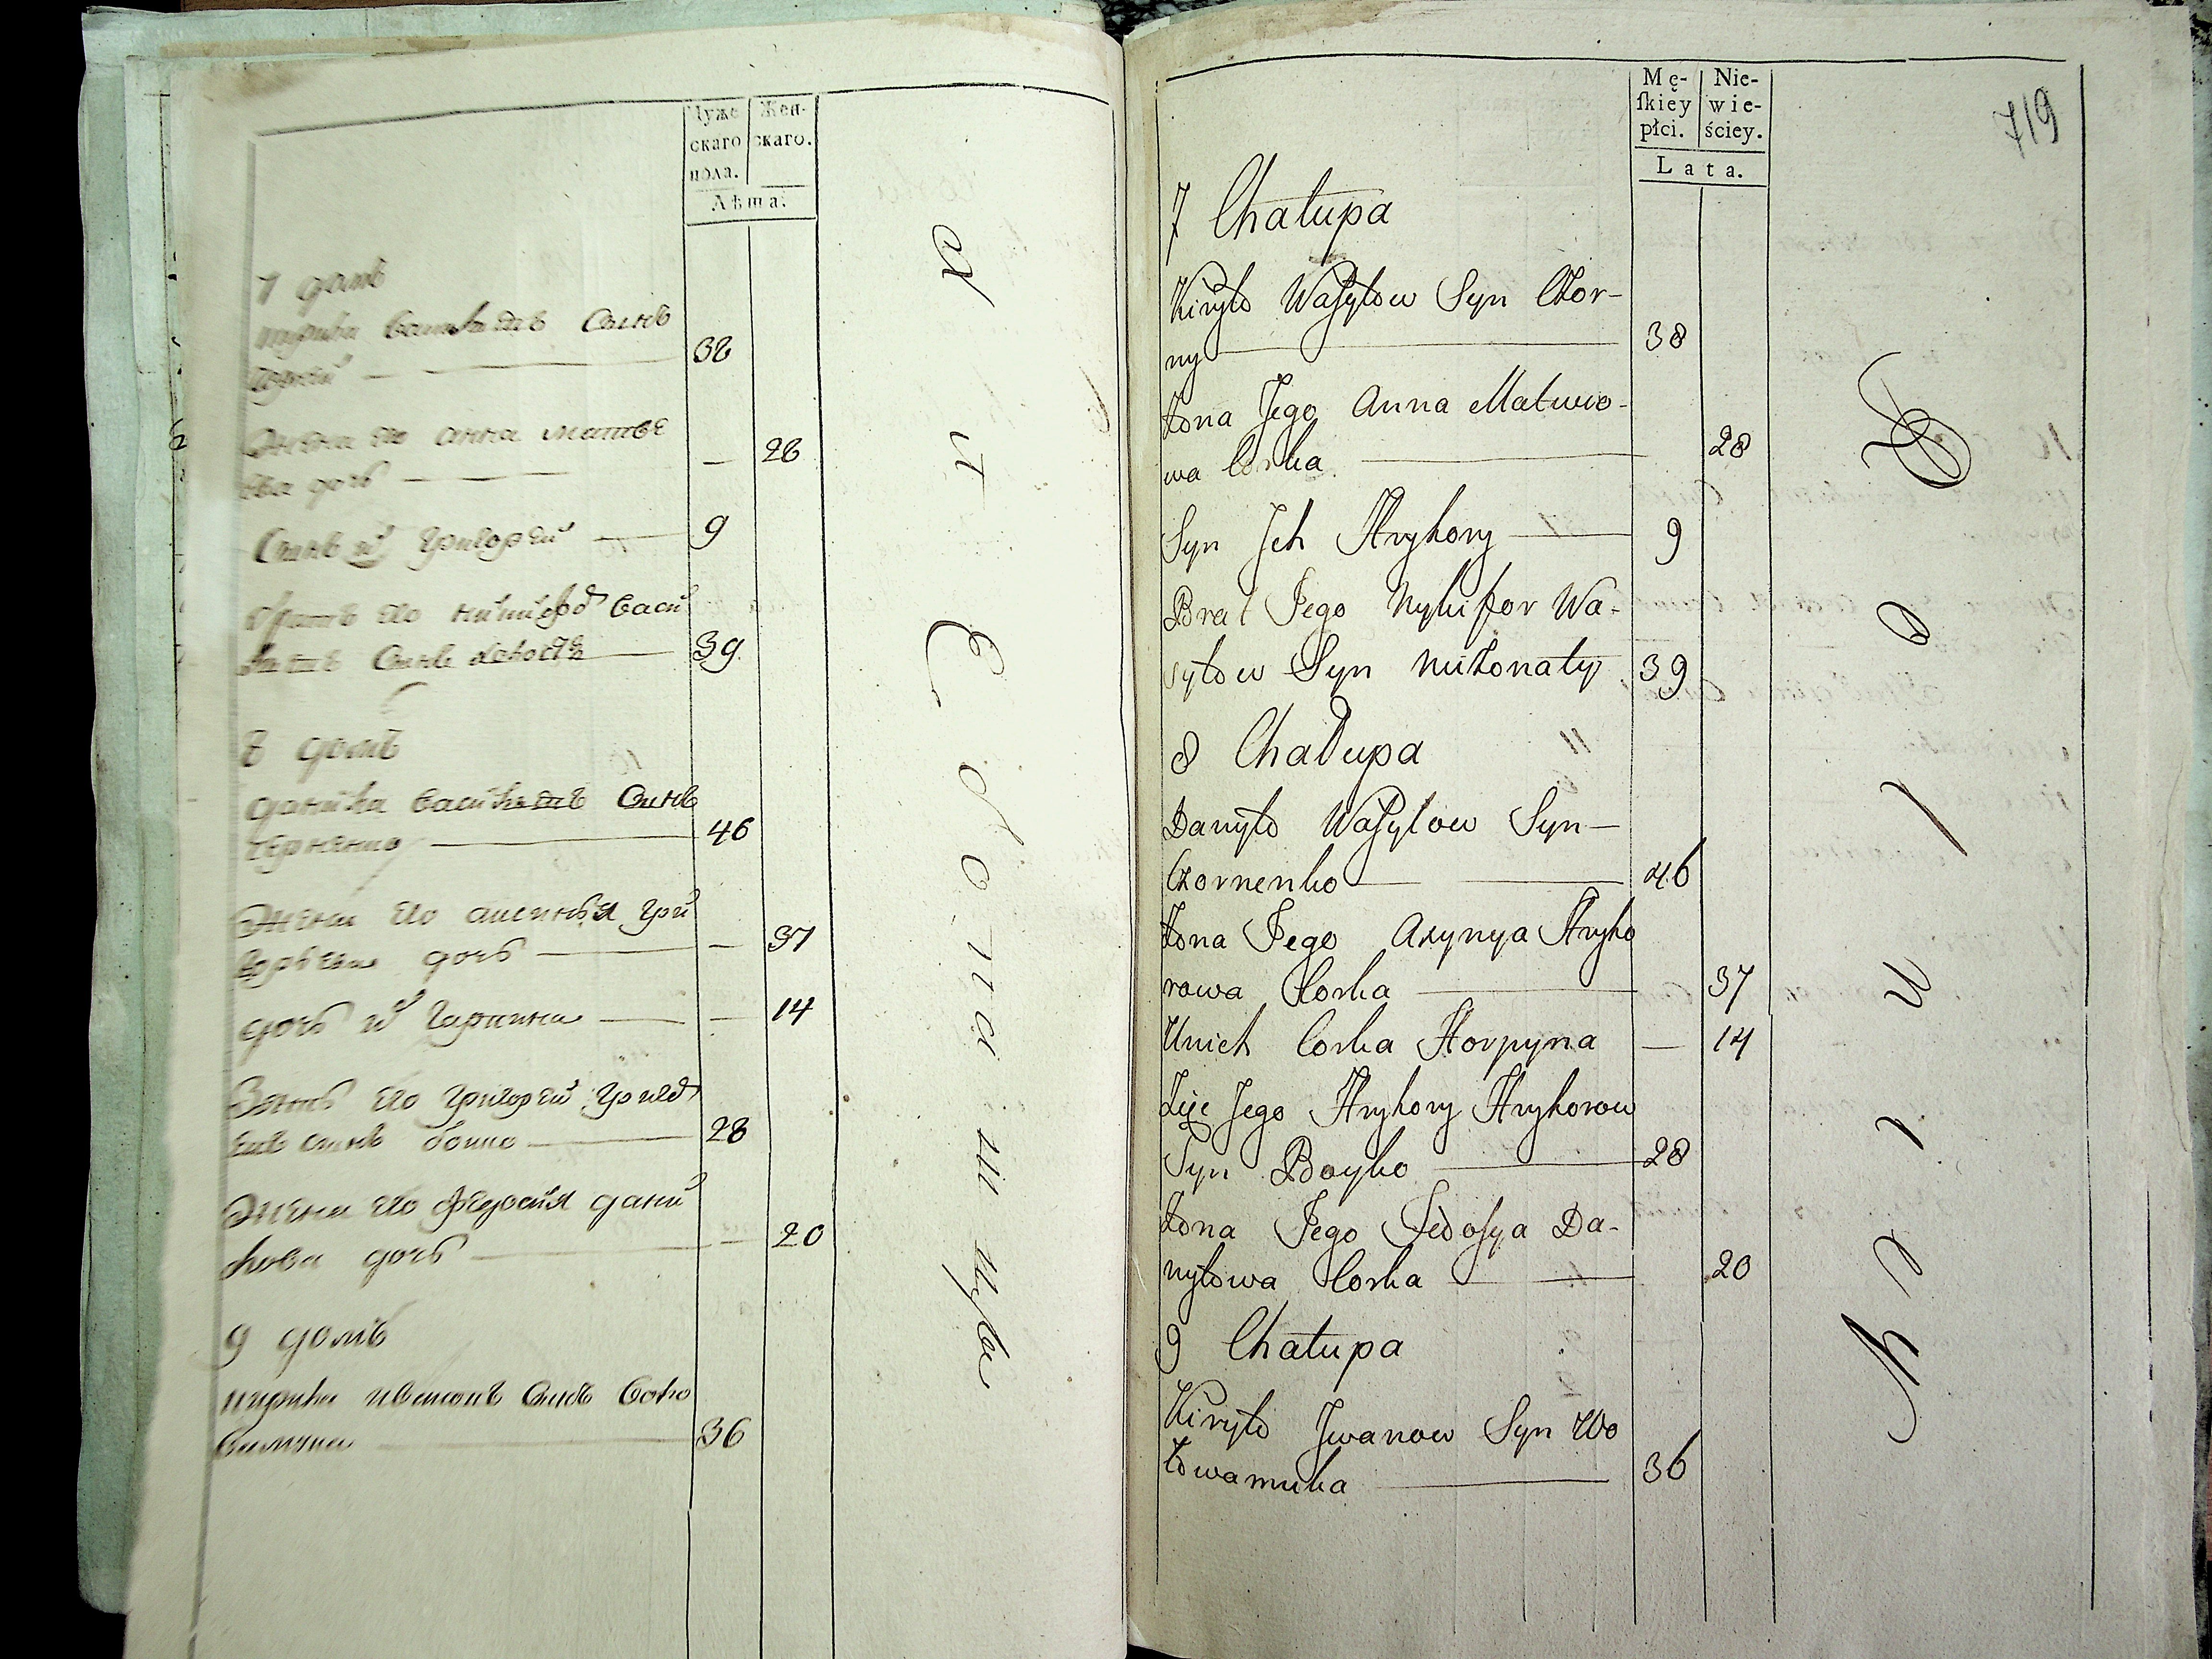 Муже
скаго
пола.
Жен-
скаго.
Лѣта.
7 домъ
кирила василиевъ Сынъ
Чорный 38
Жена его анна матвѣ
ева дочь — 28
Сынъ их григорей 9
братъ его никифор васи
лиевъ Сынъ холостъ 39
8 домъ
данила василиевъ Сынъ
черненко 46
Жена его аксинья гри
горьева дочь — 37
дочь их гарпина — 14
Зять его григорей григор
евъ сынъ бойко 28
Жена его федосия дани
лова дочь — 20
9 домъ
кирила ивановъ Сынъ воло
вамука 36
719
Mę-
ſkiey
płci.
Nie-
wie-
ściey.
Lata.
7 Chałupa
Kiryło Waſyłow Syn Czor-
ny 38
Żona Jego Anna Matwio-
wa Corka 28
Syn Jch Hryhory 9
Brat Jego Nykifor Wa-
syłow Syn nieżonaty 39
8 Chałupa
Danyło Waſylow Syn
Czornenko 46
Żona Jego Axynya Hryho
rowa Corka 37
U nich Corka Horpyna — 14
Zięć Jego Hryhory Hryhorow
Syn Boyko 28
Żona Jego Fedoſya Da-
nyłowa Corka 20
9 Chałupa
Kiryło Jwanow Syn Wo
łowamuka 36